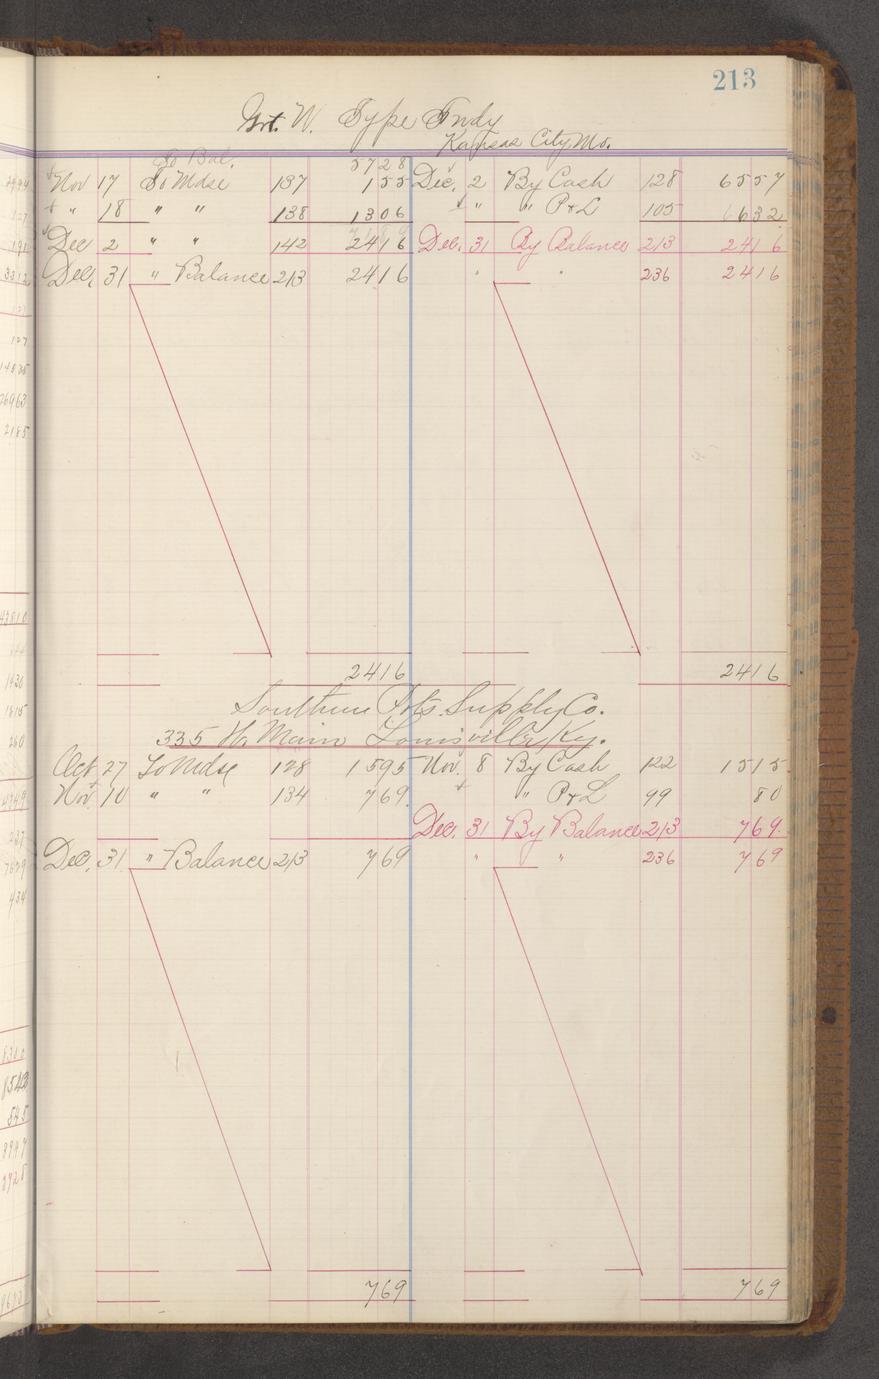 213
Grt. W. Type Fndy
Kansas City, Mo.
To Bal. 5728
Nov 17 To Mdse 137 155 Dec. 2 By Cash 128 6557
" 18 " " 138 1306 " " P&L 105 632
Dec 2 " " 142 2416 Dec. 31 By Balance 213 2416
Dec. 31 " Balance 213 2416 " " 236 2416
2416 2416
Southern Ptrs. Supply Co.
335 W. Main Louisville, Ky.
Oct. 27 To Mdse 128 1595 Nov. 8 By Cash 122 1515
Nov. 10 " " 134 769 " P&L 99 80
Dec. 31 By Balance 213 769
Dec. 31 " Balance 213 769 " " 236 769
769 769